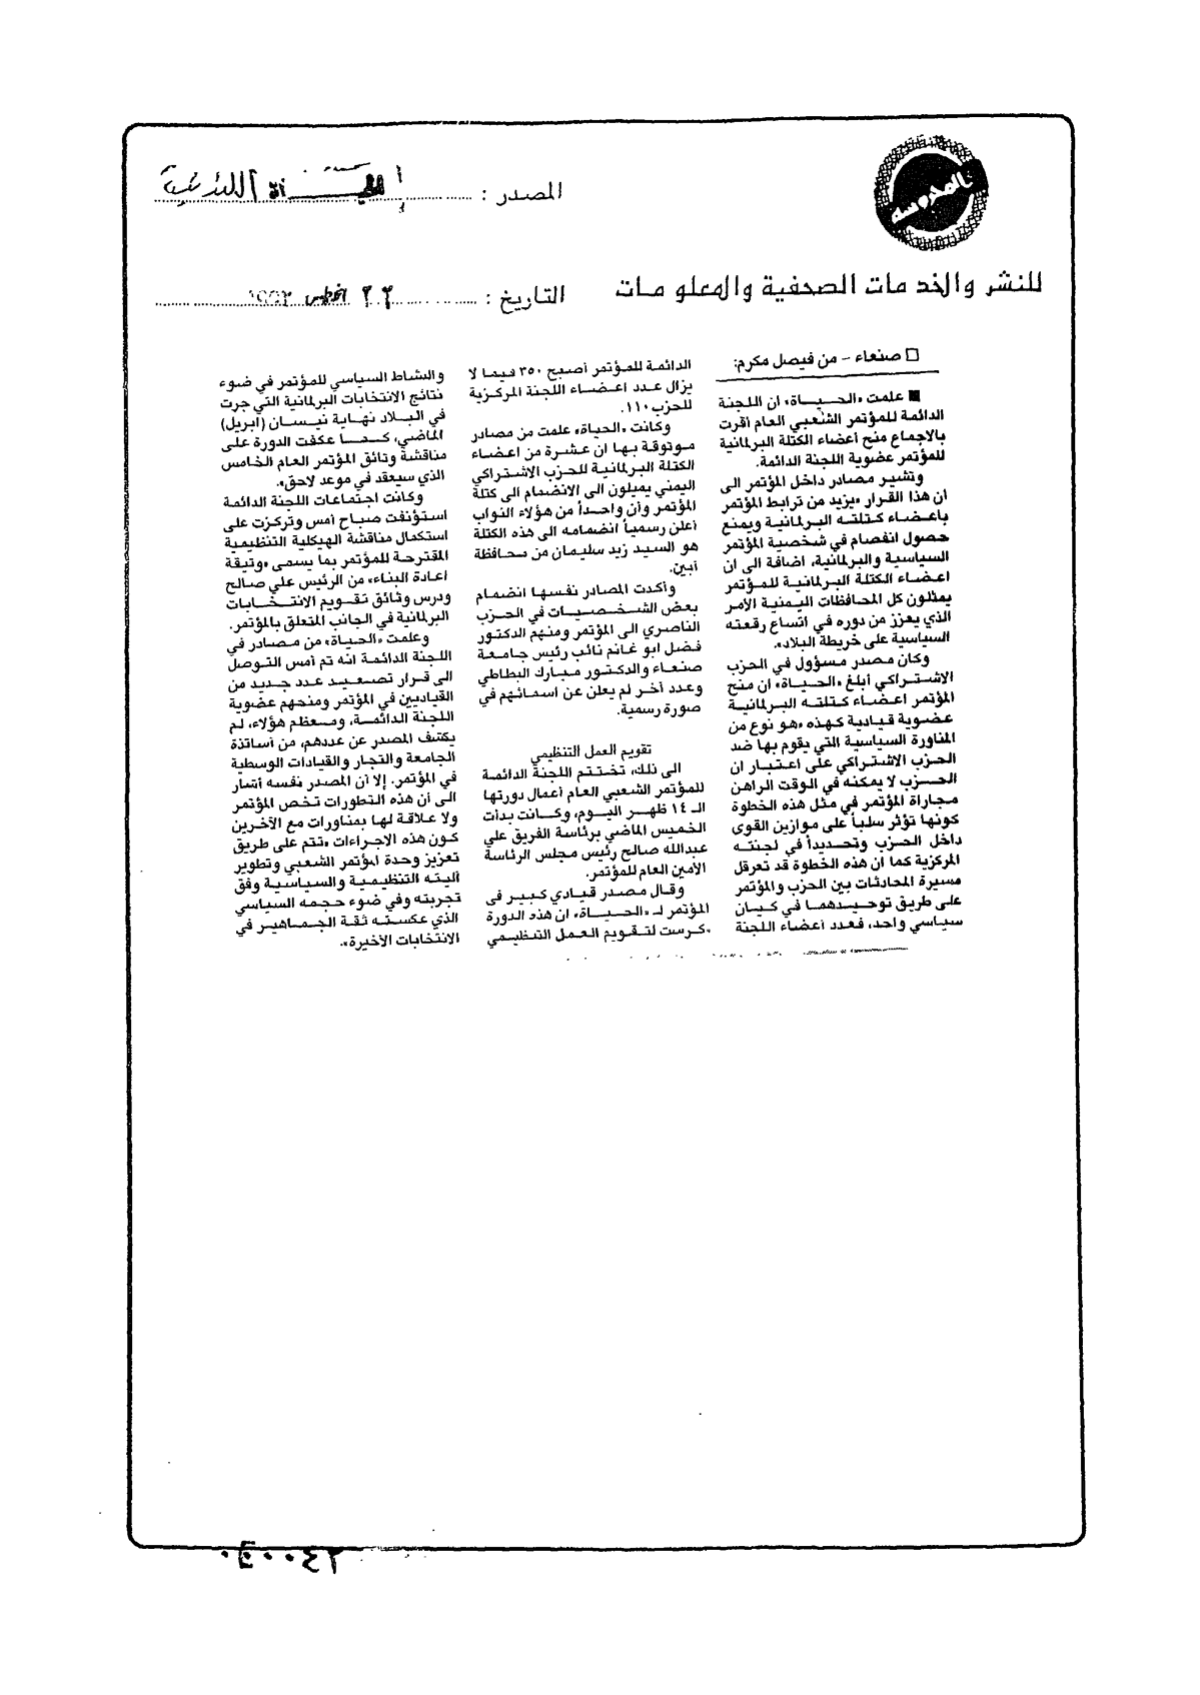 المحروسة
للنشر والخدمات الصحفية والمعلومات
المصدر :
التاريخ : ٢٢ اغسطس ١٩٩٣
□ صنعاء - من فيصل مكرم:
■ علمت «الحياة» ان اللجنة
الدائمة للمؤتمر الشعبي العام أقرت
بالاجماع منح أعضاء الكتلة البرلمانية
للمؤتمر عضوية اللجنة الدائمة.
وتشير مصادر داخل المؤتمر الى
ان هذا القرار «يزيد من ترابط المؤتمر
باعضاء كتلته البرلمانية ويمنع
حصول انفصام في شخصية المؤتمر
السياسية والبرلمانية، اضافة الى ان
اعضاء الكتلة البرلمانية للمؤتمر
يمثلون كل المحافظات اليمنية الأمر
الذي يعزز من دوره في اتساع رقعته
السياسية على خريطة البلاد».
وكان مصدر مسؤول في الحزب
الاشتراكي أبلغ «الحياة» ان منح
المؤتمر اعضاء كتلته البرلمانية
عضوية قيادية كهذه «هو نوع من
المناورة السياسية التي يقوم بها ضد
الحزب الاشتراكي على اعتبار ان
الحزب لا يمكنه في الوقت الراهن
مجاراة المؤتمر في مثل هذه الخطوة
كونها تؤثر سلباً على موازين القوى
داخل الحزب وتحديداً في لجنته
المركزية كما ان هذه الخطوة قد تعرقل
مسيرة المحادثات بين الحزب والمؤتمر
على طريق توحيدهما في كيان
سياسي واحد، فعدد أعضاء اللجنة
الدائمة للمؤتمر أصبح ٣٥٠ فيما لا
يزال عدد اعضاء اللجنة المركزية
للحزب ١١٠.
وكانت «الحياة» علمت من مصادر
موثوقة بها ان عشرة من اعضاء
الكتلة البرلمانية للحزب الاشتراكي
اليمني يميلون الى الانضمام الى كتلة
المؤتمر وأن واحداً من هؤلاء النواب
أعلن رسمياً انضمامه الى هذه الكتلة
هو السيد زيد سليمان من محافظة
أبين.
وأكدت المصادر نفسها انضمام
بعض الشخصيات في الحزب
الناصري الى المؤتمر ومنهم الدكتور
فضل ابو غانم نائب رئيس جامعة
صنعاء والدكتور مبارك البطاطي
وعدد أخر لم يعلن عن اسمائهم في
صورة رسمية.
تقويم العمل التنظيمي
الى ذلك، تختتم اللجنة الدائمة
للمؤتمر الشعبي العام أعمال دورتها
الـ ١٤ ظهر اليوم، وكانت بدأت
الخميس الماضي برئاسة الفريق علي
عبدالله صالح رئيس مجلس الرئاسة
الأمين العام للمؤتمر.
وقال مصدر قيادي كبير في
المؤتمر لـ «الحياة» ان هذه الدورة
«كرست لتقويم العمل التنظيمي
والنشاط السياسي للمؤتمر في ضوء
نتائج الانتخابات البرلمانية التي جرت
في البلاد نهاية نيسان (ابريل)
الماضي، كما عكفت الدورة على
مناقشة وثائق المؤتمر العام الخامس
الذي سيعقد في موعد لاحق».
وكانت اجتماعات اللجنة الدائمة
استؤنفت صباح أمس وتركزت على
استكمال مناقشة الهيكلية التنظيمية
المقترحة للمؤتمر بما يسمى «وثيقة
اعادة البناء» من الرئيس علي صالح
ودرس وثائق تقويم الانتخابات
البرلمانية في الجانب المتعلق بالمؤتمر.
وعلمت «الحياة» من مصادر في
اللجنة الدائمة انه تم أمس التوصل
الى قرار تصعيد عدد جديد من
القياديين في المؤتمر ومنحهم عضوية
اللجنة الدائمة، ومعظم هؤلاء، لم
يكشف المصدر عن عددهم، من أساتذة
الجامعة والتجار والقيادات الوسطية
في المؤتمر. إلا أن المصدر نفسه أشار
الى أن هذه التطورات تخص المؤتمر
ولا علاقة لها بمناورات مع الآخرين
كون هذه الاجراءات «تتم على طريق
تعزيز وحدة المؤتمر الشعبي وتطوير
أليته التنظيمية والسياسية وفق
تجربته وفي ضوء حجمه السياسي
الذي عكسته ثقة الجماهير في
الانتخابات الأخيرة».